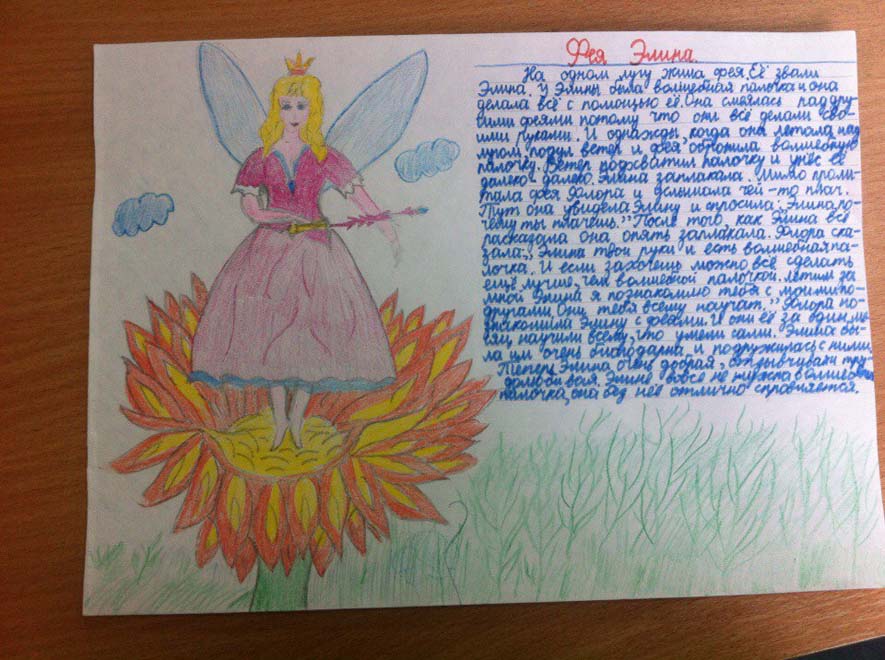 Фея Элина.
На одном лугу жила фея. Её звали
Элина. У Элины была волшебная палочка и она
делала всё с помощью её. Она смеялась над дру-
гими феями потому что они всё делали сво-
ими руками. И однажды, когда она летала над
лугом подул ветер и фея обронила волшебную
палочку. Ветер подхватил палочку и унёс её
далеко - далеко. Элина заплакала. Мимо проле-
тала фея Флора и услышала чей-то плач.
Тут она увидела Элину и спросила: Элина по-
чему ты плачешь." После того, как Элина всё
рассказала она опять заплакала. Флора ска-
зала: „Элина твои руки и есть волшебная па-
лочка. И если захочешь можно всё сделать
ещё лучше, чем волшебной палочкой, летим за
мной Элина я познакомлю тебя с моими по-
другами. Они тебя всему научат." Флора по-
знакомила Элину с феями. И они её за один ме-
сяц научили всему, что умели сами. Элина бы-
ла им очень благодарна и подружилась с ними.
Теперь Элина очень добрая, отзывчивая тру-
долюбивая. Элине вовсе не нужна волшебная
палочка, она без неё отлично справляется.